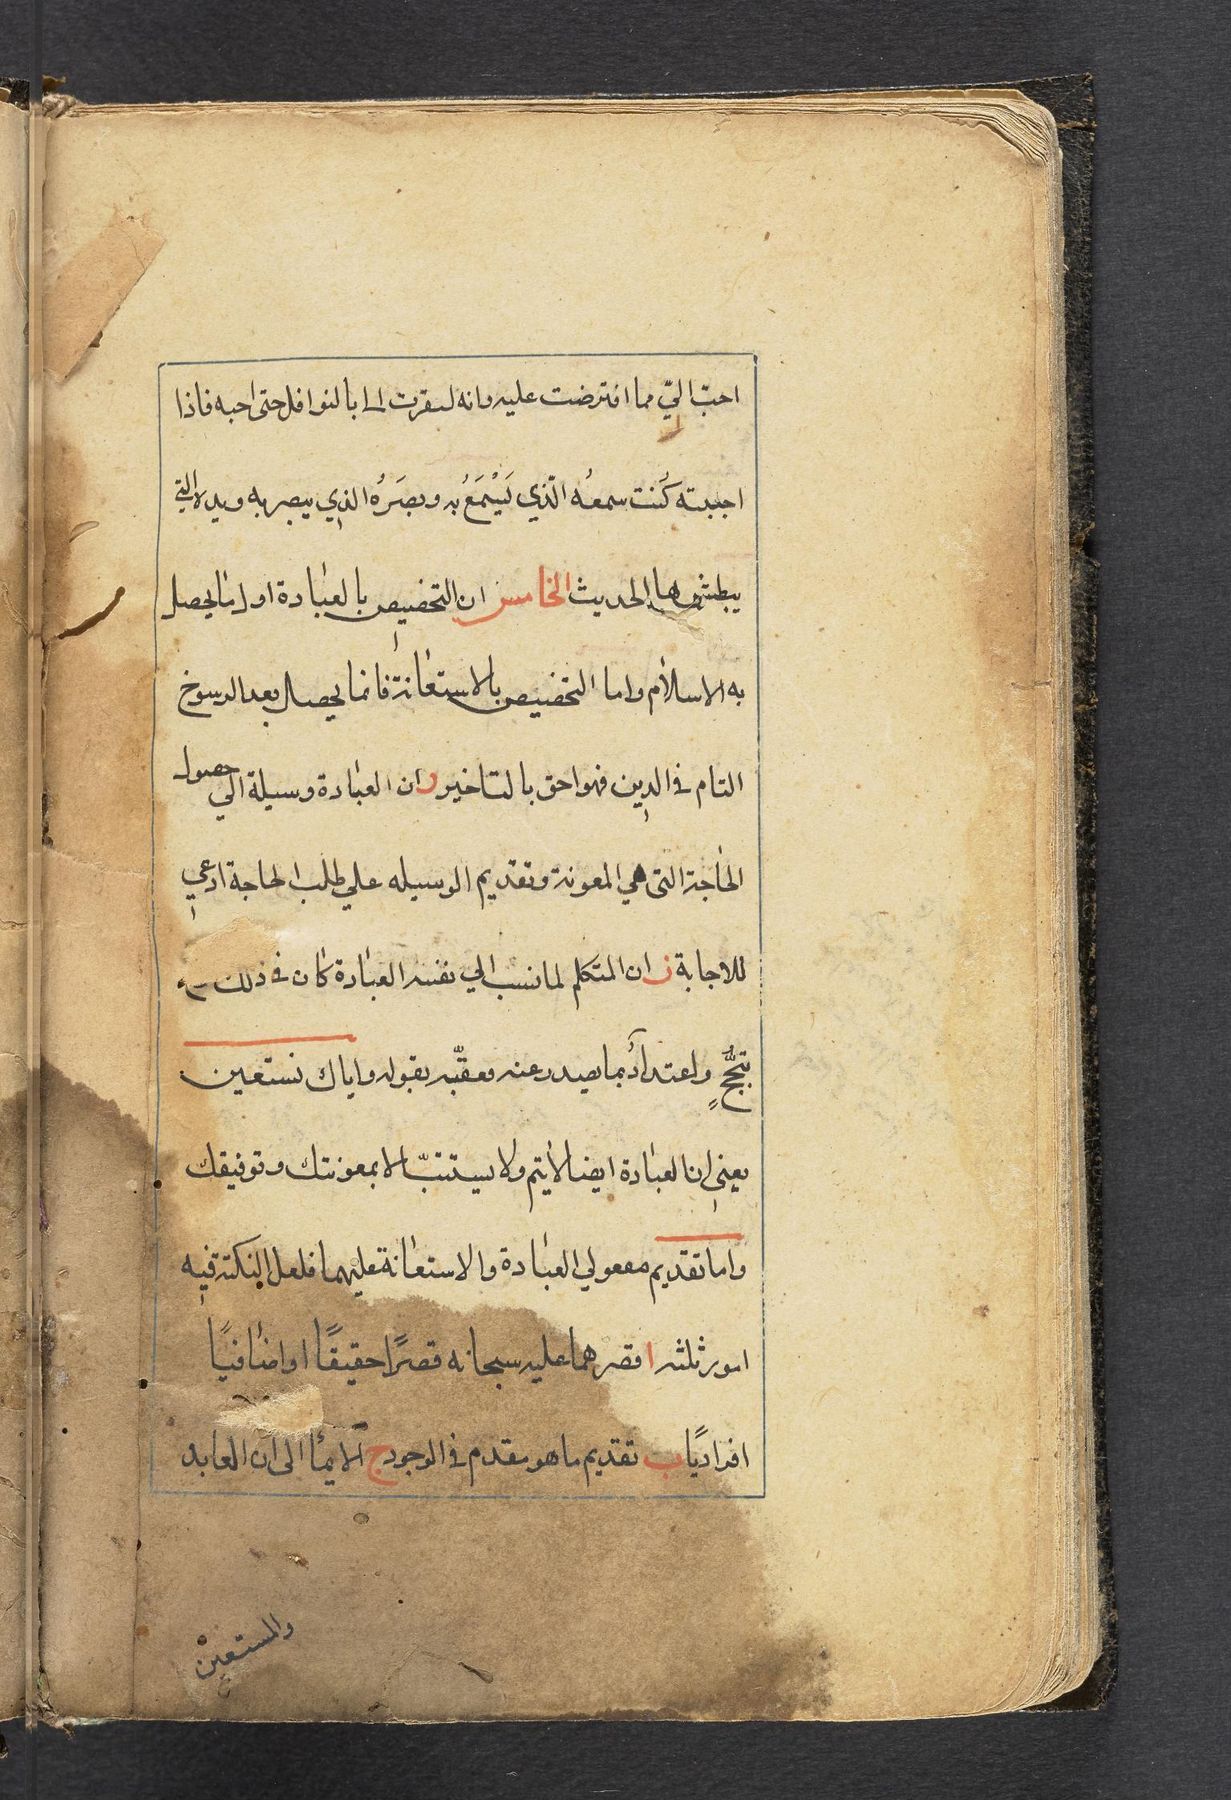 احبّ اليّ مما افترضت عليه وانه ليقرب الي بالنوافل حتى احبه فاذا
احببته كُنت سمعُه الّذي يَسْمَعُ به وبصَرُه الذي يبصر به ويده التي
يبطش بها الحديث الخامس ان التخصيص بالعبادة اول ما يحصل
به الاسلام واما التخصيص بالاستعانة فانما يحصل بعد الرسوخ
التام في الدين فهو احق بالتاخير و ان العبادة وسيلة الي حصول
الحاجة التي هي المعونة وتقديم الوسيله علي طلب الحاجة ادعي
للاجابة ز ان المتكلم لما نسب الي نفسه العبادة كان في ذلك
تبجّحٍ واعتدادٌ بما يصدر عنه فعقّبه بقوله واياك نستعين
يعني ان العبادة ايضا لا يتم ولا يستتبّ الا بمعونتك وتوفيقك
واما تقديم مفعولي العبادة والاستعانة عليهما فلعل النكتة فيه
امور ثلثه ا قصرهما عليه سبحانه قصرًا حقيقًا او اضافيًا
افراديًا ب تقديم ما هو مقدم في الوجود ج الايماً الى ان العابد
والمستعين